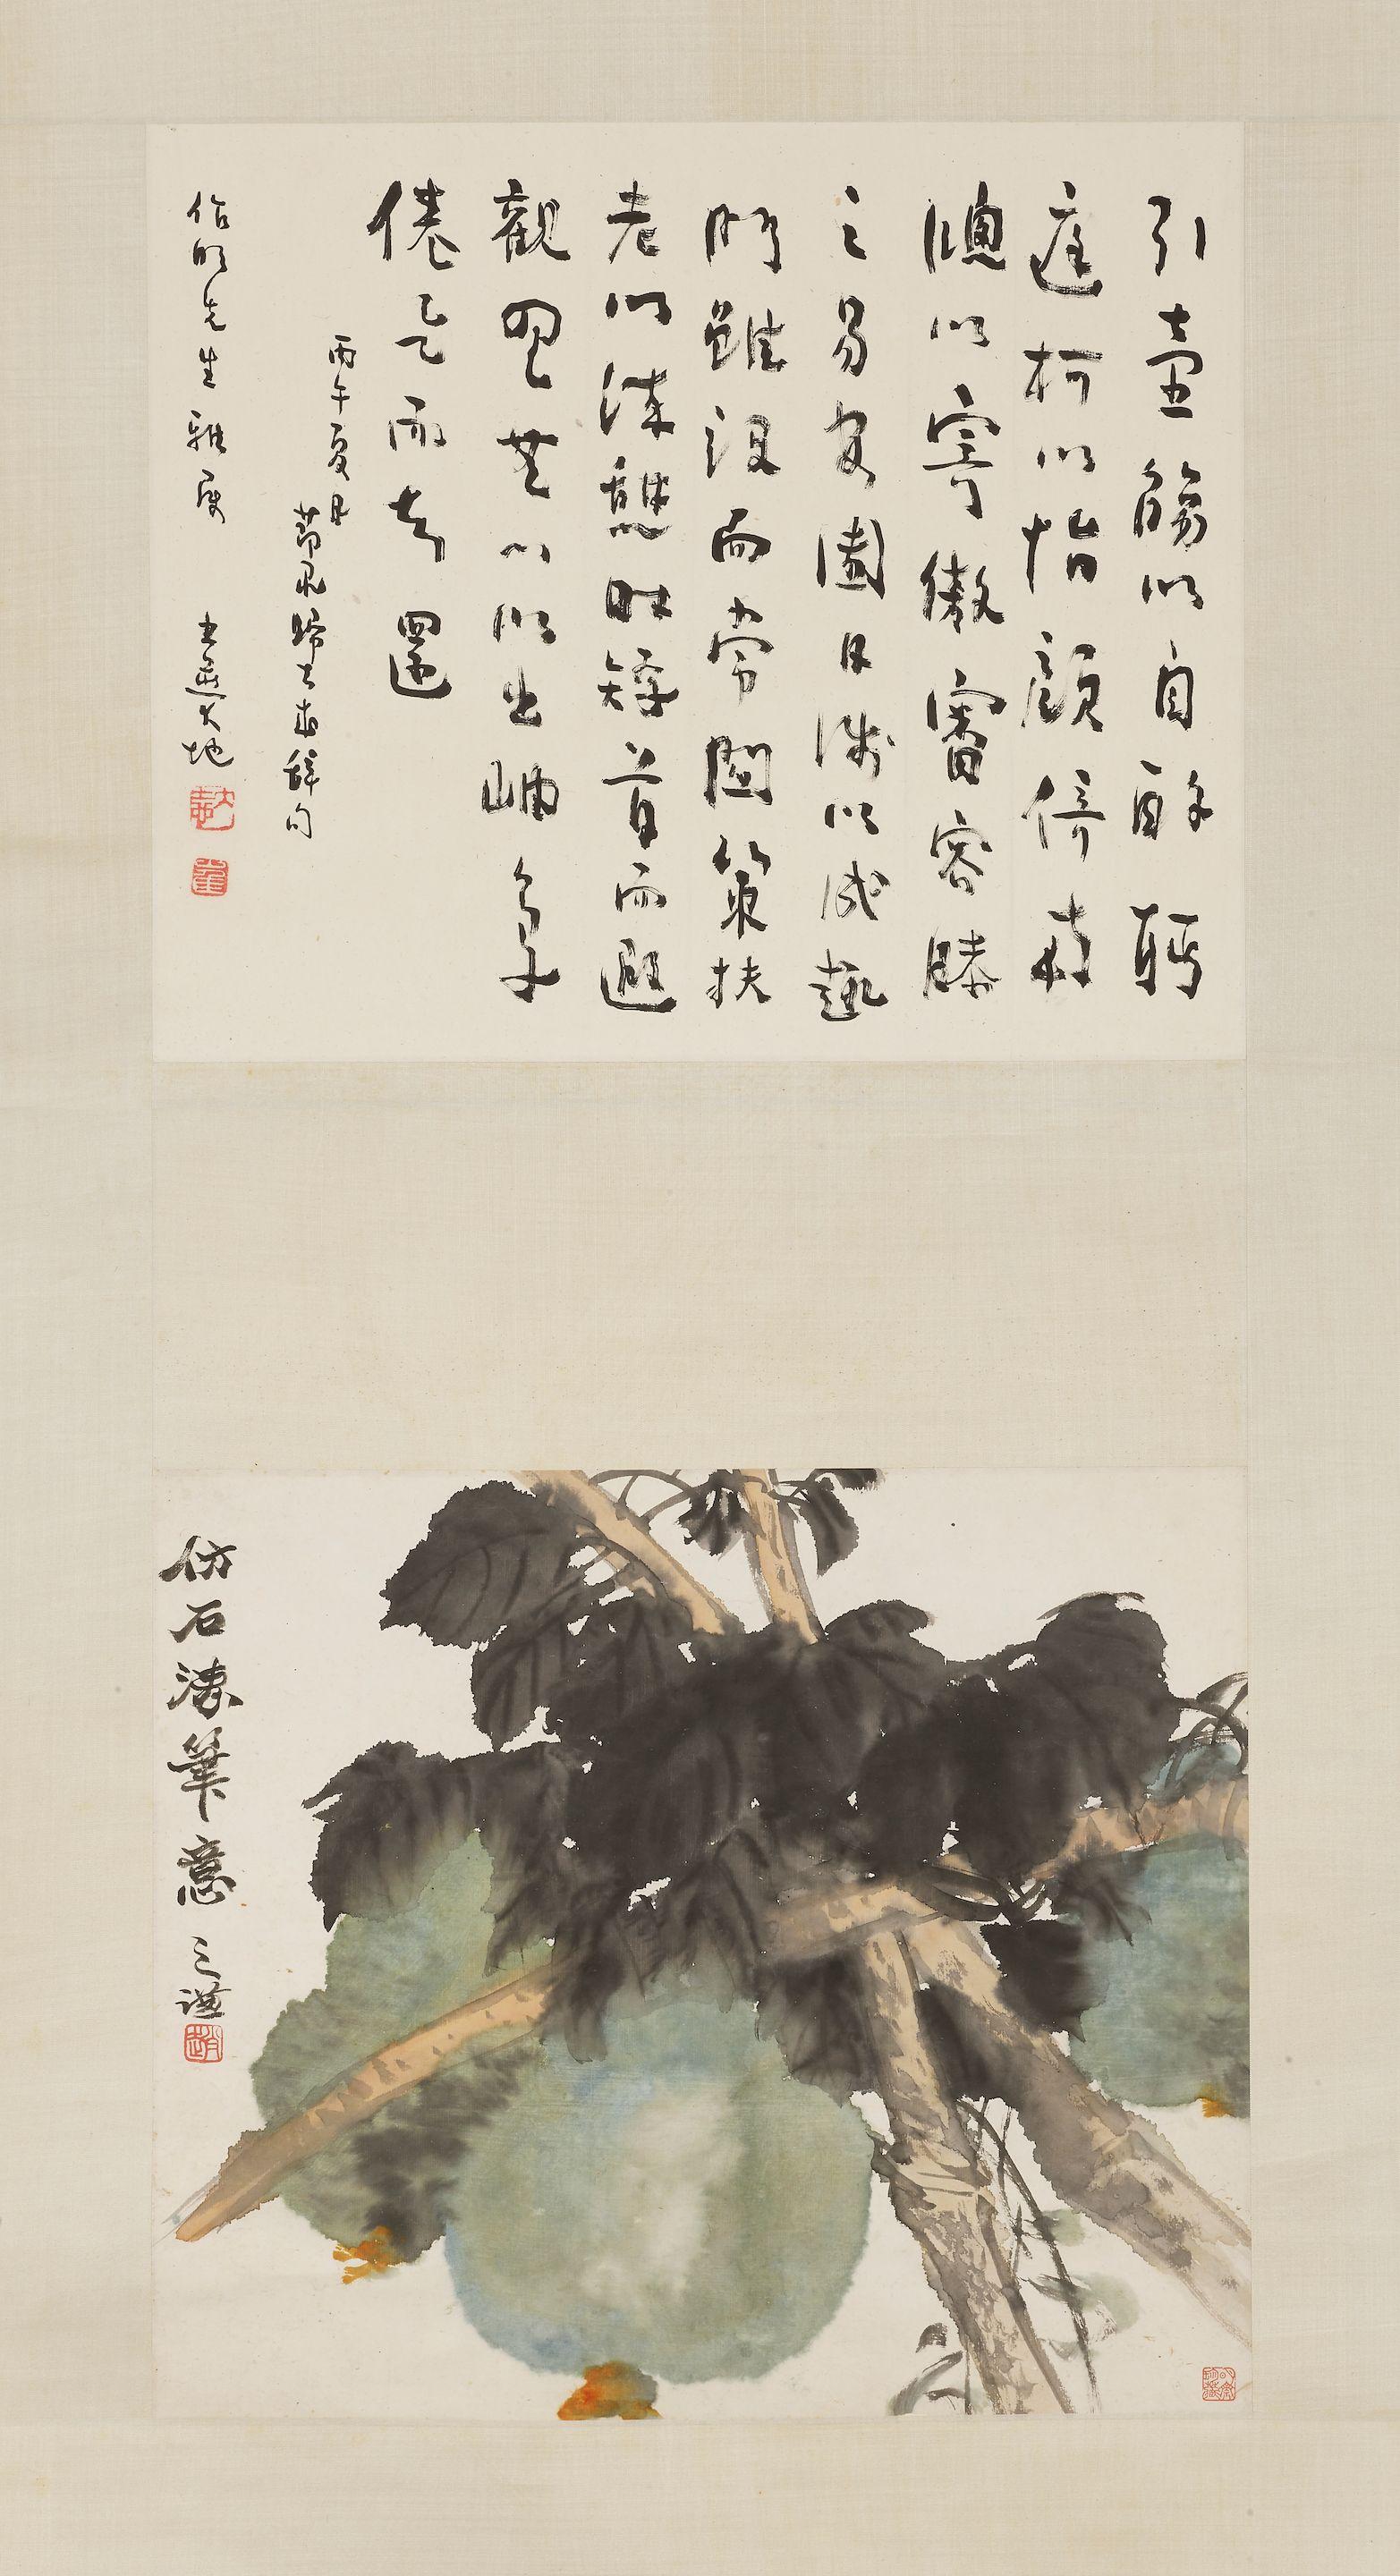 引壺觴以自酌眄
庭柯以怡顏倚南
牕以寄傲審容膝
之易安園日涉以成趣
門雖設而常關策扶
老以流憩時矯首而遐
觀雲無心以出岫鳥
倦飛而知還
丙午夏日
節录歸去來辭句
明先生雅屬 大地
仿石濤筆意